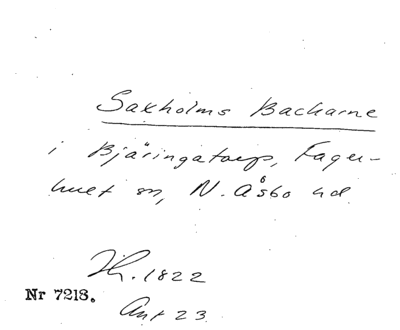 Saxholms Backarne
i Bjäringatorp, Fager-
hult sn, N. Åsbo hd
Th. 1822
Nr 7218.
Ant 23